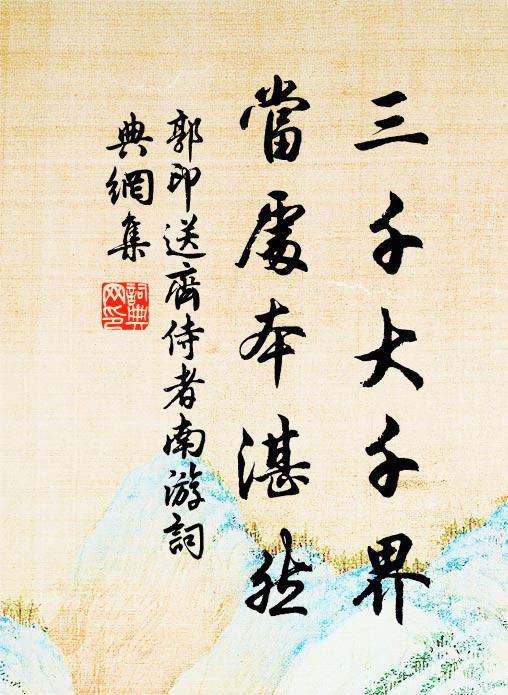 三千大千界
當處本湛然
郭印送齊侍者南游詞
典網集
詞典網印